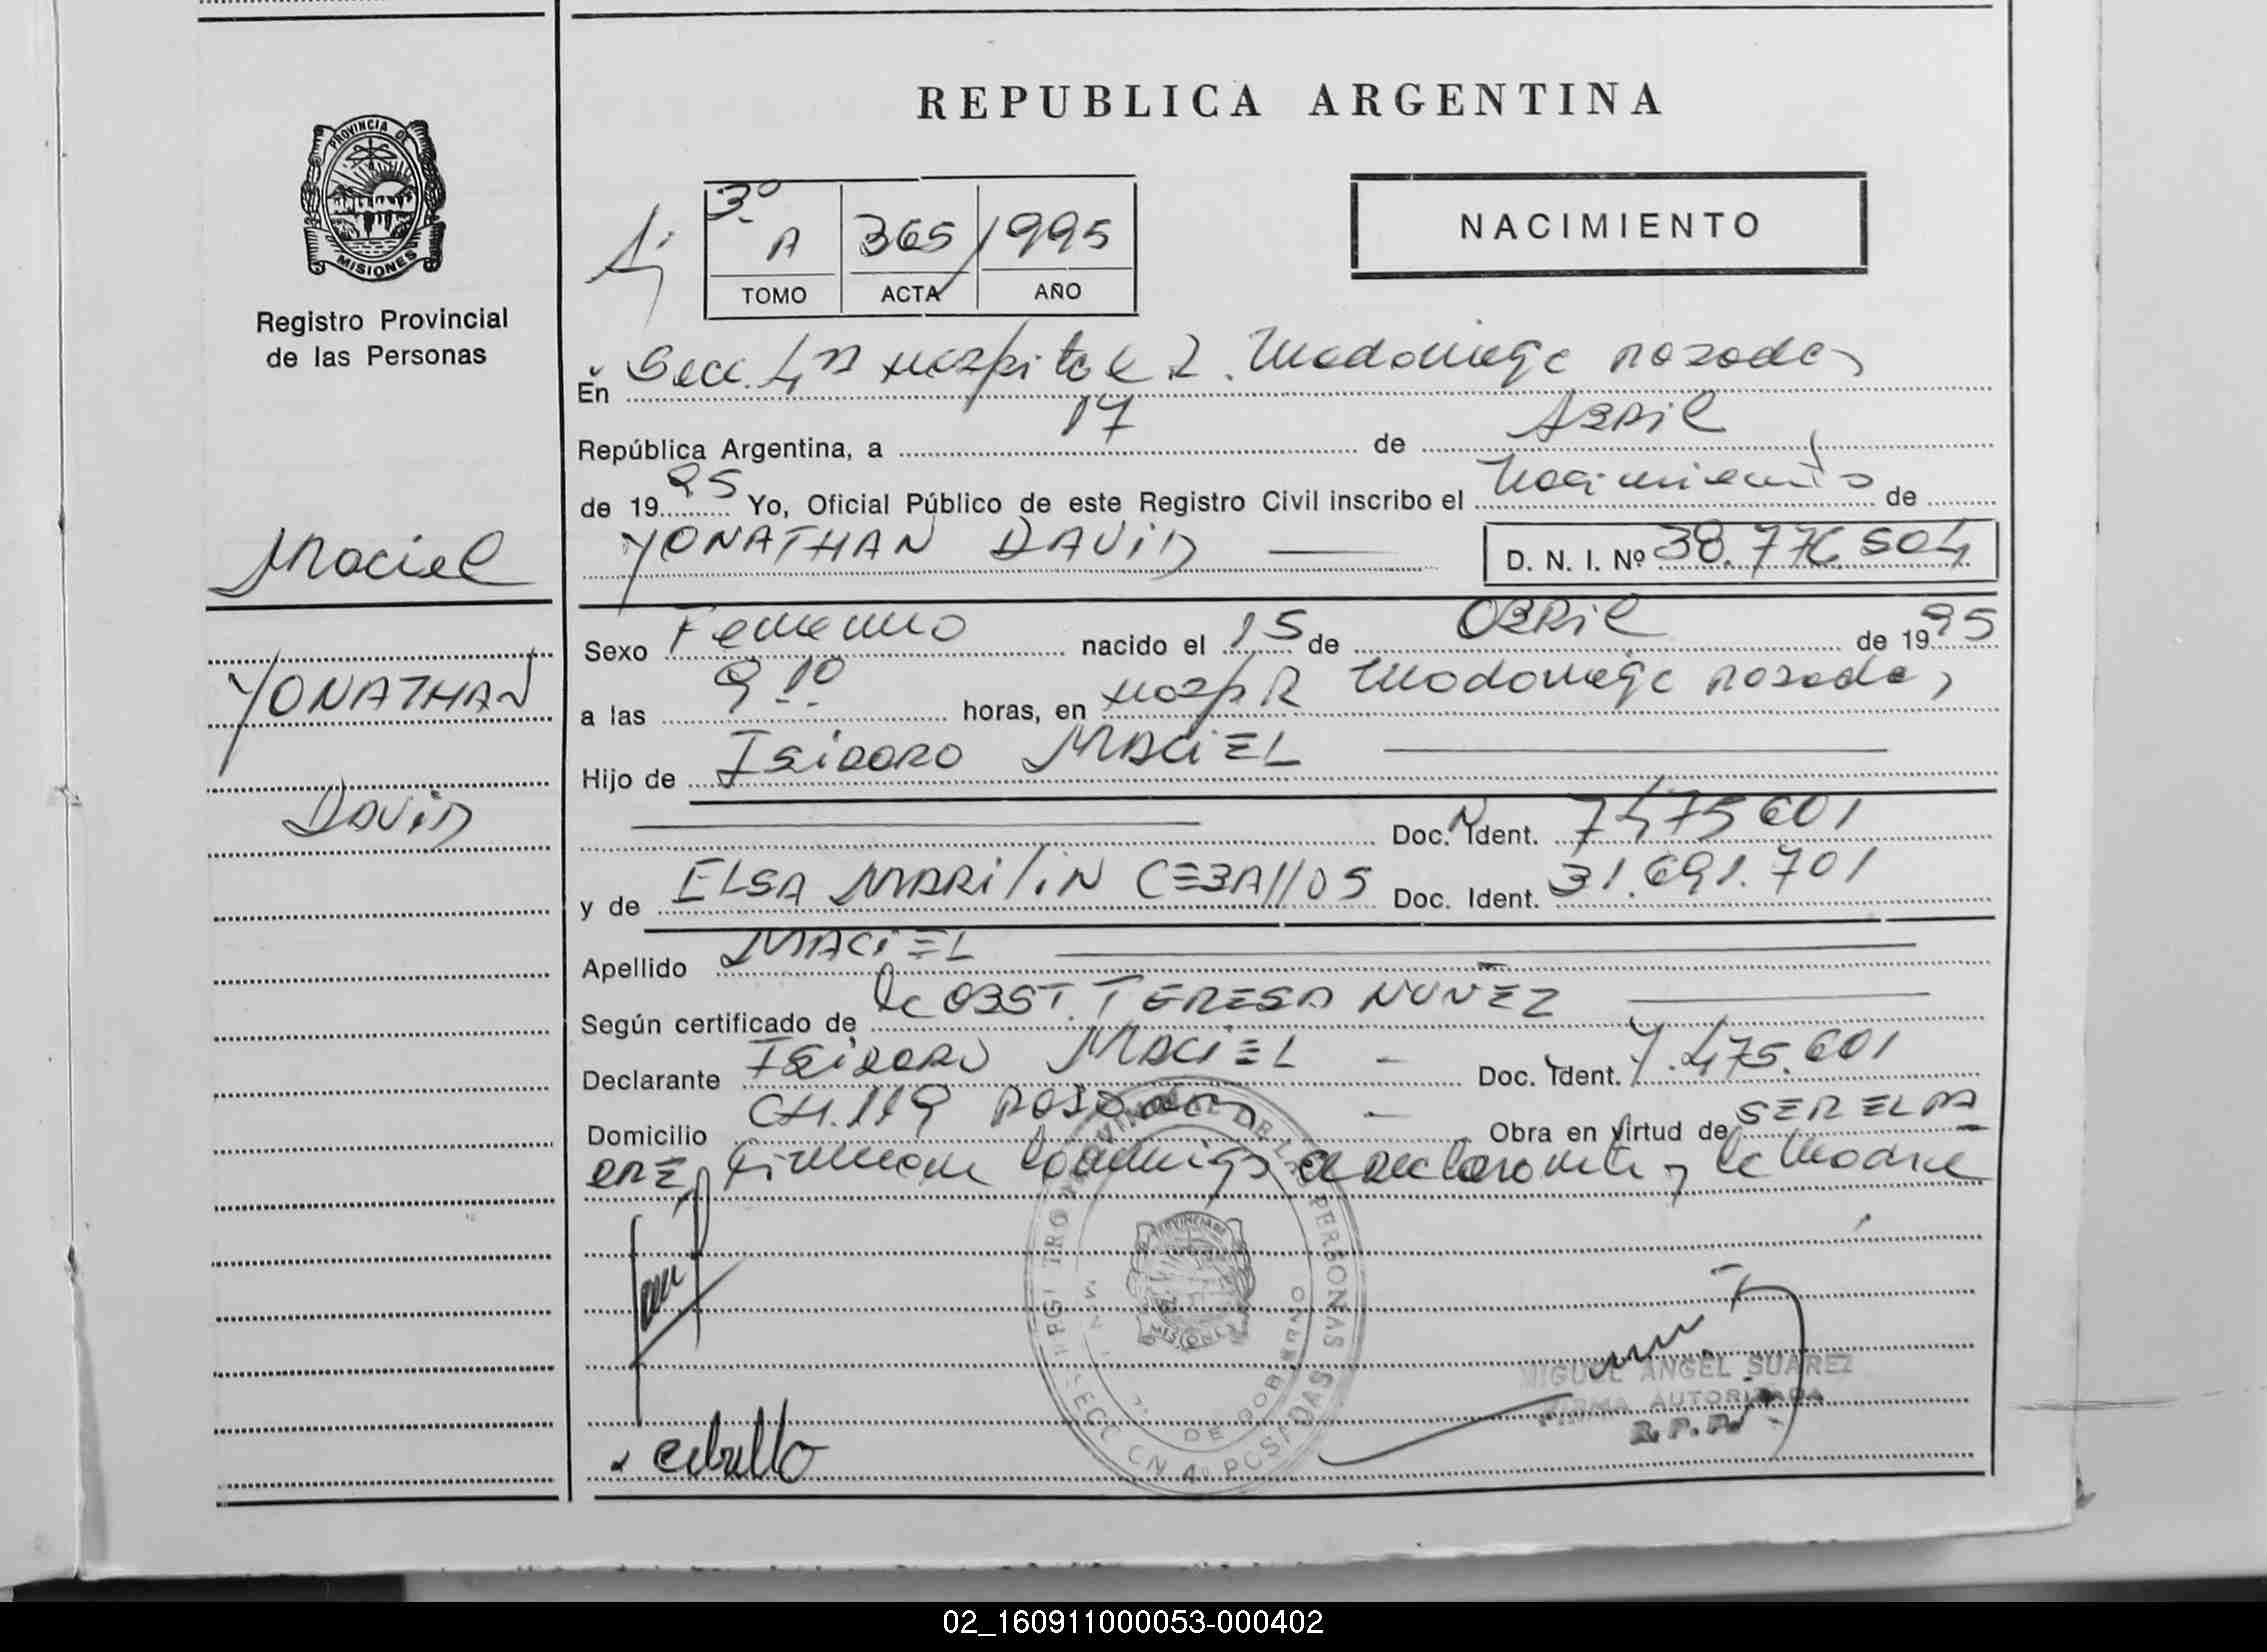 REPUBLICA ARGENTINA
PROVINCIA DE
MISIONES
Registro Provincial
de las Personas
3º
A 365 1995
TOMO ACTA AÑO
NACIMIENTO
En Secc. 4ta Hospital R. Madariaga Posadas
República Argentina, a 17 de Abril
de 1995 Yo, Oficial Público de este Registro Civil inscribo el Nacimiento de
Maciel
YONATHAN DAVID D. N. I. Nº 38.776.504
Sexo Femenino nacido el 15 de ABRIL de 1995
YONATHAN
a las 9 10 horas, en Hosp R Madariaga Posadas
Hijo de ISIDORO MACIEL
DAVID
Doc. Ident. 7475601
y de ELSA MARILIN CEBALLOS Doc. Ident. 31.691.701
Apellido MACIEL
Según certificado de la OBST. TERESA NUÑEZ
Declarante ISIDORO MACIEL - Doc. Ident. 7.475.601
Domicilio CH.119 POSADAS - Obra en virtud de SER EL PA
DRE, Firman conmigo el declarante y la Madre
PROVINCIA DE
MISIONES
DE GOBIERNO
MIGUEL ANGEL SUAREZ
FIRMA AUTORIZADA
R.P.P.
02_160911000053-000402